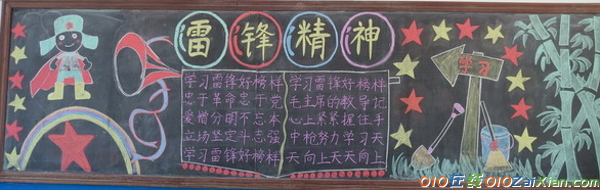 雷锋精神
学习雷锋好榜样
忠于革命忠于党
爱憎分明不忘本
立场坚定斗志强
学习雷锋好榜样
学习雷锋好榜样
毛主席的教导记
心上紧紧握住手
中枪努力学习天
天向上天天向上
学习
010在线010ZaiXian.com